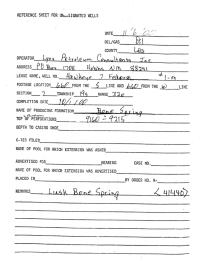 REFERENCE SHEET FOR UNDESIGNATED WELLS
DATE 11 6
OIL/GAS Oil
COUNTY Lea
OPERATOR Lynx Petroleum Consultants Inc
ADDRESS PO Box 1708 Hobbs NM 88241
LEASE NAME, WELL NO. Hawkeye 7 Federal #1-M
FOOTAGE LOCATION, 660 FROM THE S LINE AND 660 FROM THE W LINE
SECTION 7 TOWNSHIP 19S RANGE 32E
COMPLETION DATE
NAME OF PRODUCING FORMATION Bone Spring
TOP OF PERFORATIONS 9160 - 9215
DEPTH TO CASING SHOE
C-123 FILED
NAME OF POOL FOR WHICH EXTENSION WAS ASKED
ADVERTISED FOR HEARING CASE NO.
NAME OF POOL FOR WHICH EXTENSION WAS ADVERTISED
PLACED IN BY ORDER NO. R-
REMARKS Lusk Bone Spring (41440)